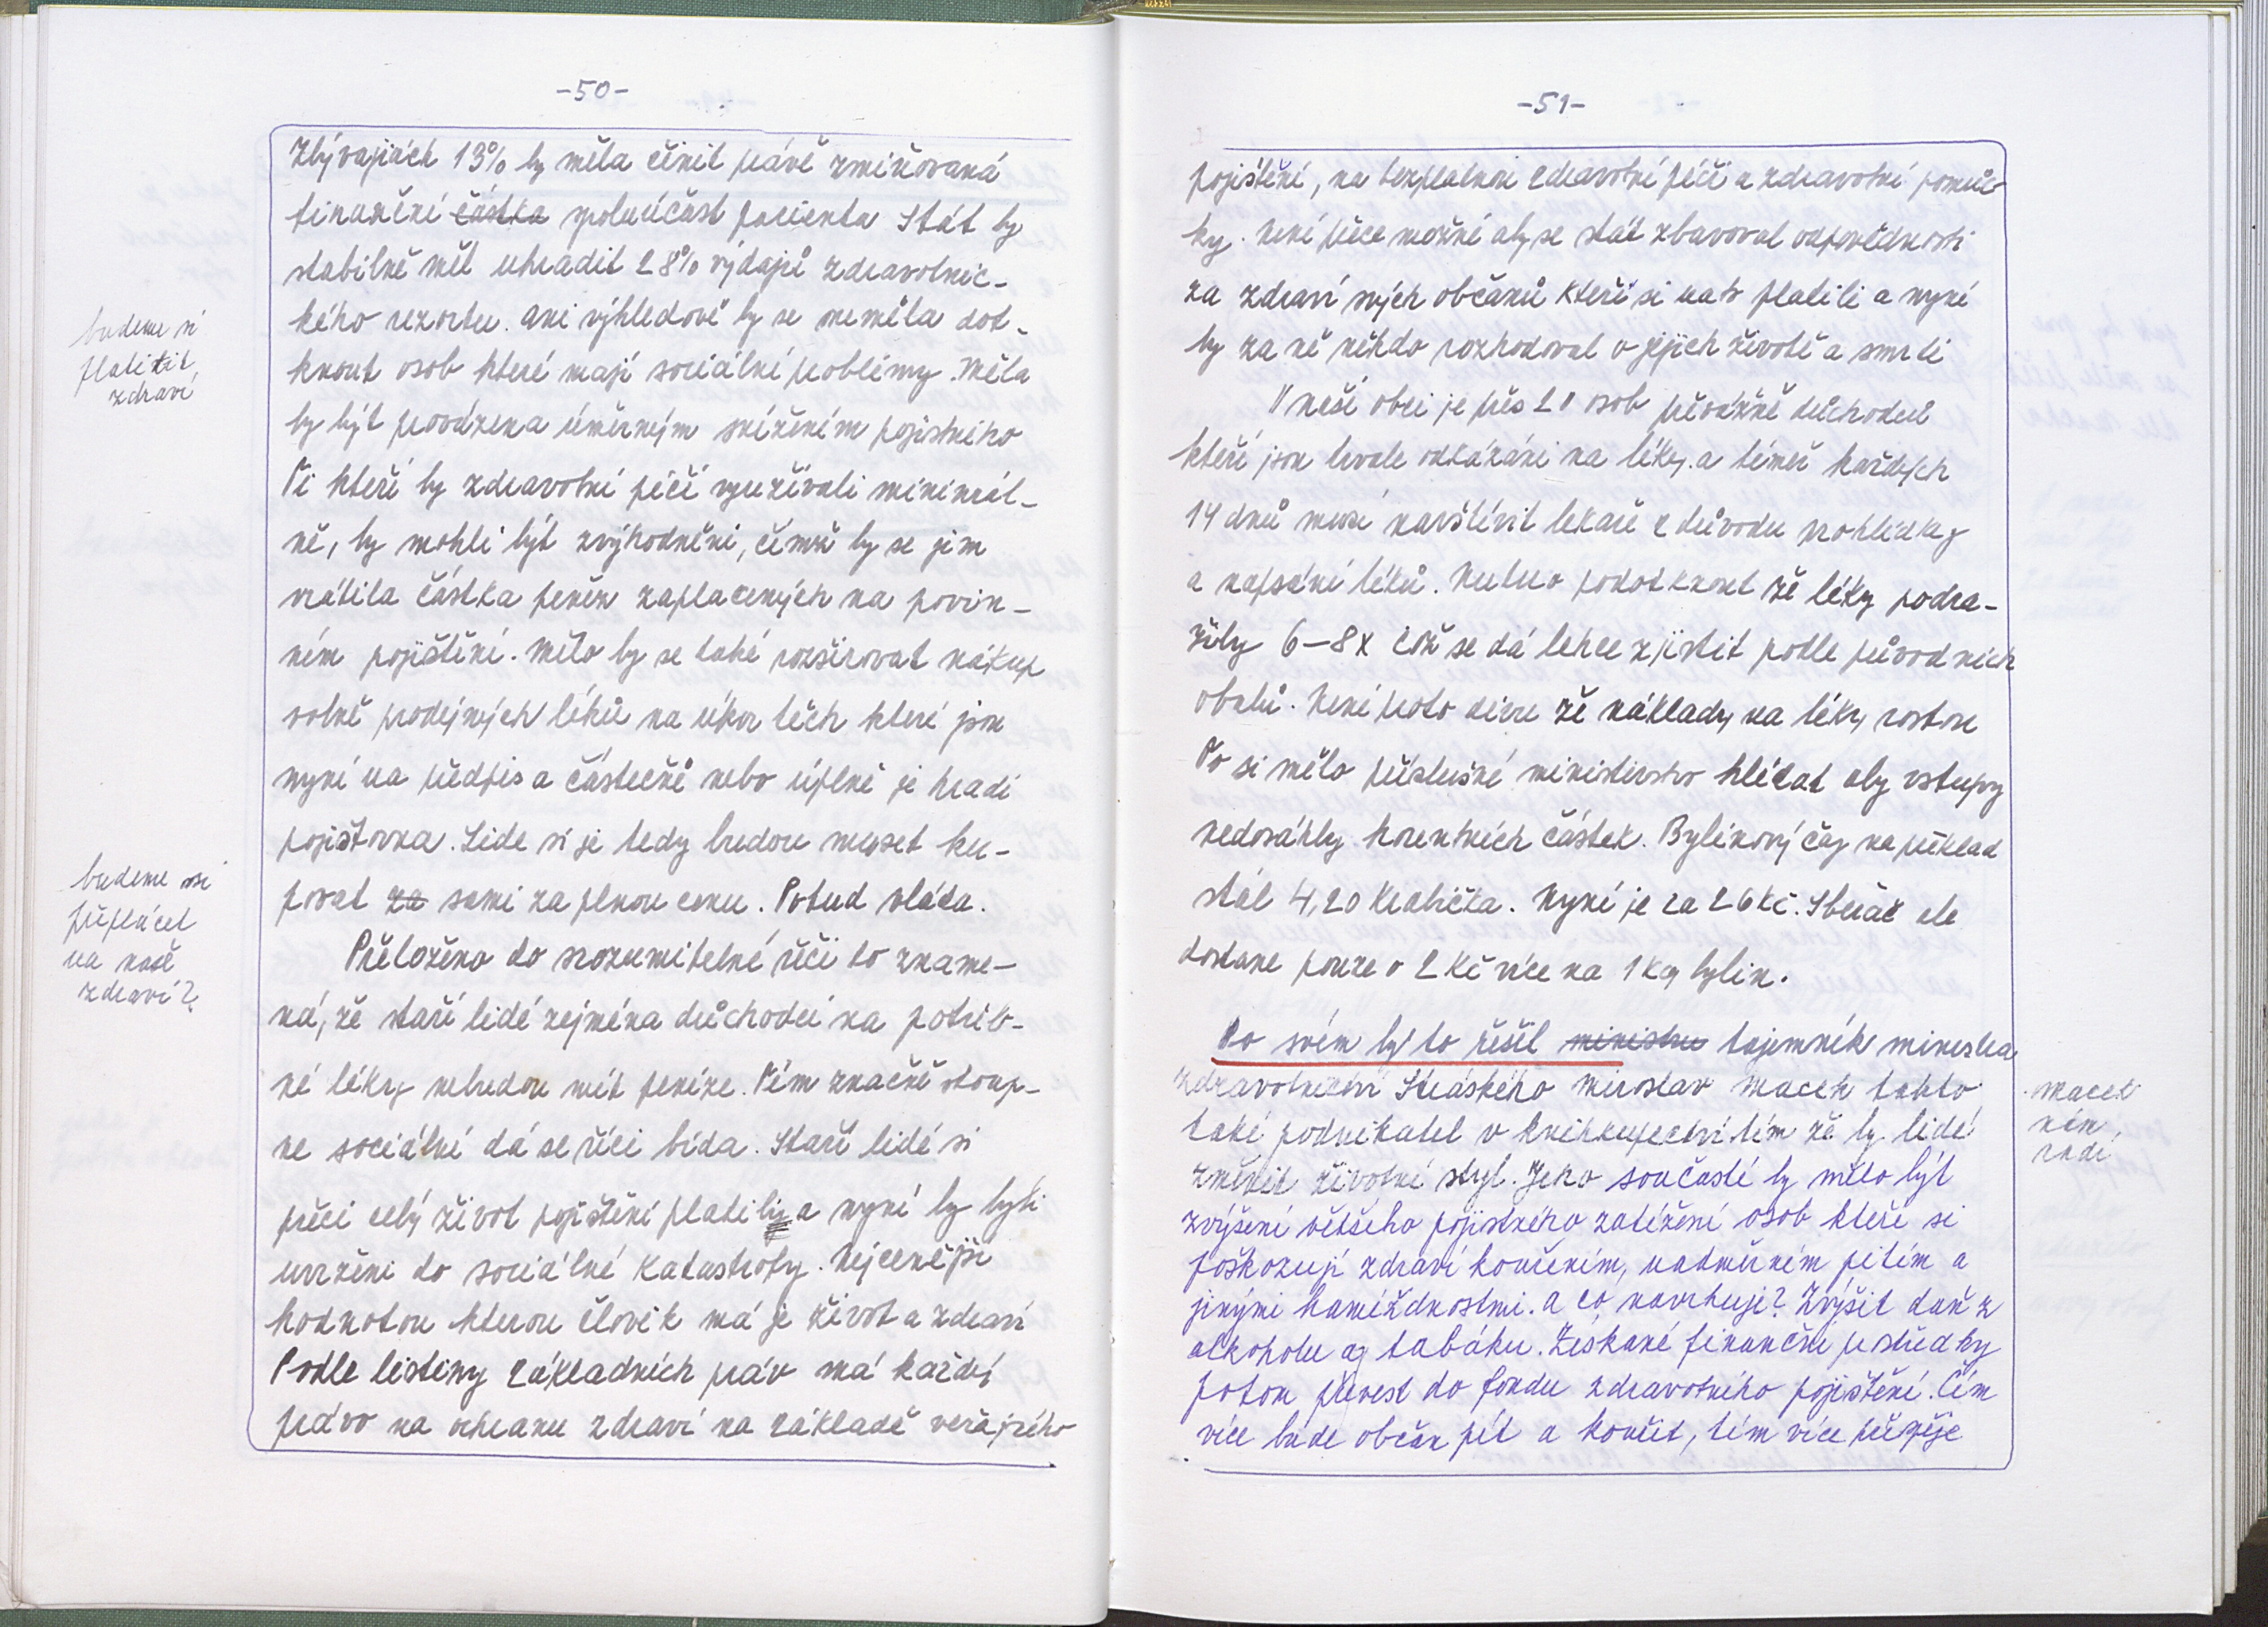 -50-
Zbývajících 13% by měla činit právě zmiňovaná
finanční částka spoluúčast pacienta Stát by
stabilně měl uhradit 28% výdajů zdravotnic-
kého rezortu. Ani výhledově by se neměla dot-
knout osob které mají sociální problémy. Měla
by být provázena úměrným snížením pojistného
Ti kteří by zdravotní péčí využívali minimál-
ně, by mohli být zvýhodněni, čímž by se jim
vrátila částka peněz zaplacených na povin-
ném pojištění. Mělo by se také rozšiřovat nákup
volně prodejných léků na úkor těch které jsou
nyní na předpis a částečně nebo úplně je hradí
pojišťovna. Lidé si je tedy budou muset ku-
povat za sami za plnou cenu. Potud vláda.
Přeloženo do srozumitelné řeči to zname-
ná, že staří lidé zejména důchodci na potřeb-
né léky nebudou mít peníze. Tím značně stoup-
ne sociální dá se říci bída. Staří lidé si
přeci celý život pojištění platily a nyní by byli
uvrženi do sociálné katastrofy. Nejcenější
hodnotou kterou člověk má je život a zdraví
Podle listiny základních práv má každý
právo na ochranu zdraví na základě veřejného
budeme si
platit
zdraví
budeme si
připlácet
na naše
zdraví?
-51-
pojištění, na bezplatnou zdravotní péči a zdravotní pomůc
ky. Není přece možné aby se stát zbavoval odpovědnosti
za zdraví svých občanů kteří si na to platili a nyní
by za ně někdo rozhodoval o jejich životě a smrti
V naší obci je přes 20 osob převážně důchodců
kteří jsou trvale odkázáni na léky a téměř každých
14 dnů musí navštívit lékaře z důvodu prohlídky
a napsání léků. Nutno podotknout že léky podra-
žily 6-8x což se dá lehce zjistit podle původních
obalů. Není proto divu že náklady na léky rostou
To si mělo příslušné ministerstvo hlídat aby vstupy
nedosáhly horentních částek. Bylinový čaj na příklad
stál 4,20 Krabička. Nyní je za 26 Kč. Sběrač ale
dostane pouze o 2 Kč více na 1 kg bylin.
Po svém by to řešil ministru tajemník ministra
zdravotnictví Stráského Miroslav Macek tohto
také podnikatel v knihkupectví tím že by lidé
změnit životní styl. Jeho součastí by mělo být
zvýšení většího pojistného zatížení osob kteří si
poškozují zdraví kouřením, nadměrném pitím a
jinými hamižnostmi. A co navrhuje? Zvýšit daň z
alkoholu aj tabáku. Získané finanční prostředky
potom převest do fondu zdravotního pojištění. Čím
více bude občan pít a kouřit, tím více přispěje
Macek
nám
radí